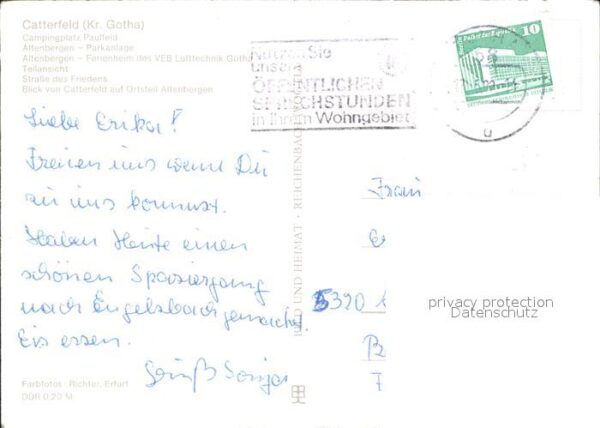 Catterfeld (Kr. Gotha)
Campingplatz Paulfeld
Altenbergen - Parkanlage
Altenbergen - Ferienheim des VEB Lufttechnik Gotha
Teilansicht
Straße des Friedens
Blick von Catterfeld auf Ortsteil Altenbergen
Nutzen Sie
unsere
ÖFFENTLICHEN
SPRECHSTUNDEN
in Ihrem Wohngebiet
10
u
Liebe Erika!
Freuen uns wenn Du
zu uns kommst.
Haben Heute einen
schönen Spaziergang
nach Engelsbach gemacht.
Eis essen.
Gruß Sonja
BILD UND HEIMAT · REICHENBACH
Frau
5320
privacy protection
Datenschutz
Farbfotos: Richter, Erfurt
DDR 0,20 M